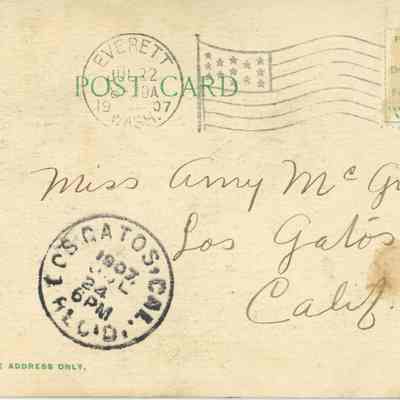 EVERETT
JUL 22
19 07
WASH.
POST CARD
Miss Amy McG
Los Gatos
Calif.
LOS GATOS, CAL.
1907
JUL
24
6 PM
REC'D.
E ADDRESS ONLY.